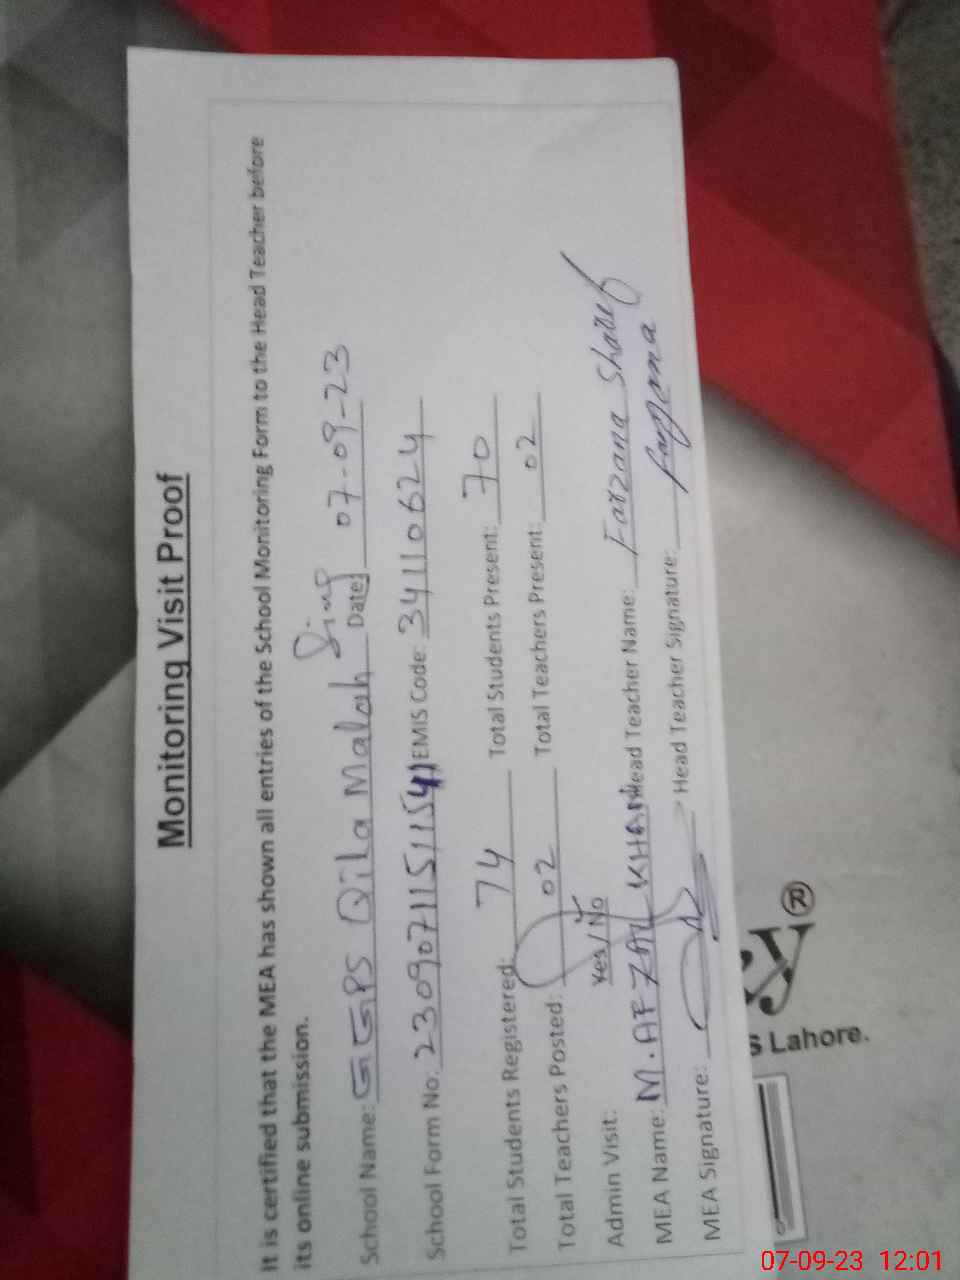 Monitoring Visit Proof
It is certified that the MEA has shown all entries of the School Monitoring Form to the Head Teacher before
its online submission.
School Name: GGPS Qila Malah Sing Date: 07-09-23
School Form No: 2309071151154 EMIS Code: 34110624
Total Students Registered: 74 Total Students Present: 70
Total Teachers Posted: 02 Total Teachers Present: 02
Admin Visit: Yes/No
MEA Name: M.AFZAL KHAN Head Teacher Name: Farzana Shareef
MEA Signature: Head Teacher Signature: Farzana
®
s Lahore.
07-09-23 12:01